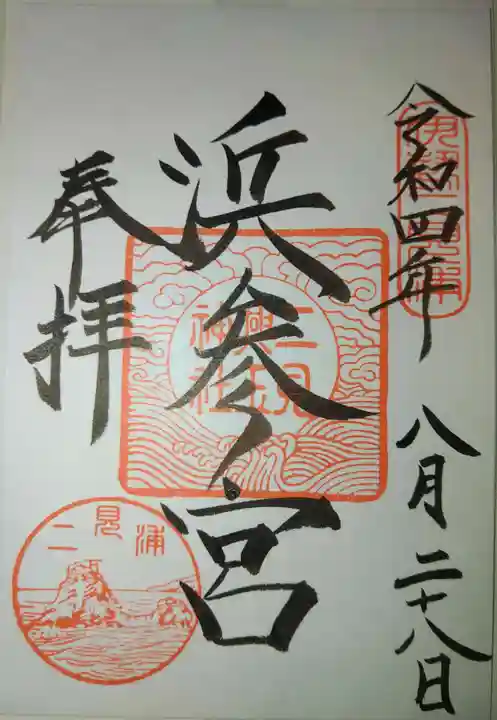 令和四年 八月二十八日
伊勢二見浦
浜参ノ宮
二見
興玉
神社
奉拝
二見浦